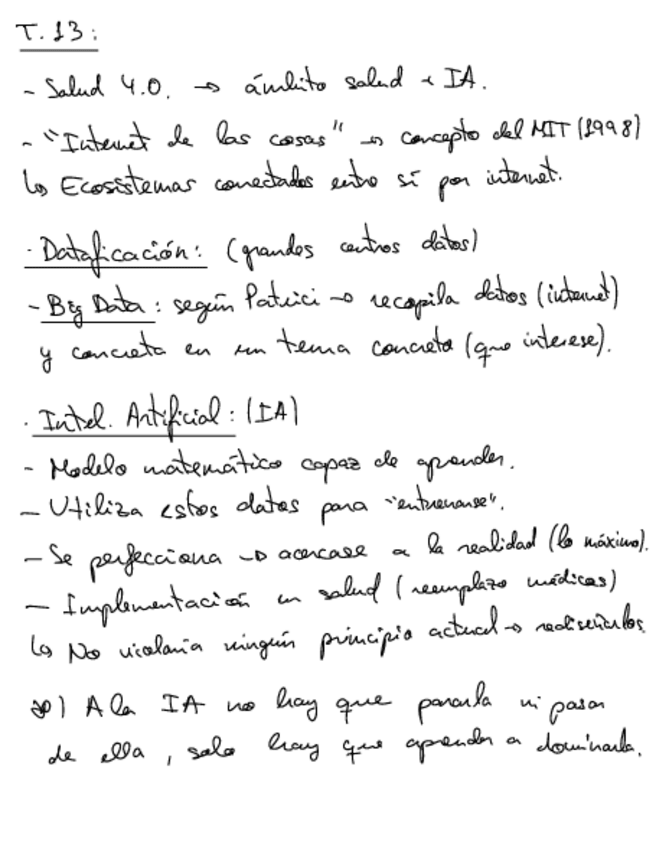 T.13:
- Salud 4.0. → ámbito salud + IA.
- "Internet de las cosas" → concepto del MIT (1998)
↳ Ecosistemas conectados entre sí por internet.
· Dataficación: (grandes centros datos)
- Big Data: según Patrici → recopila datos (internet)
y concreta en un tema concreto (que interese).
· Intel. Artificial: (IA)
- Modelo matemático capaz de aprender.
- Utiliza estos datos para "entrenarse".
- Se perfecciona → acercase a la realidad (lo máximo).
- Implementación en salud (reemplazo médicos)
↳ No violaría ningún principio actual → rediseñarlos.
*) A la IA no hay que pararla ni pasar
de ella, solo hay que aprender a dominarla.